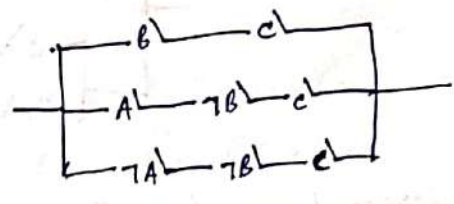 B C
A ¬B C
¬A ¬B C